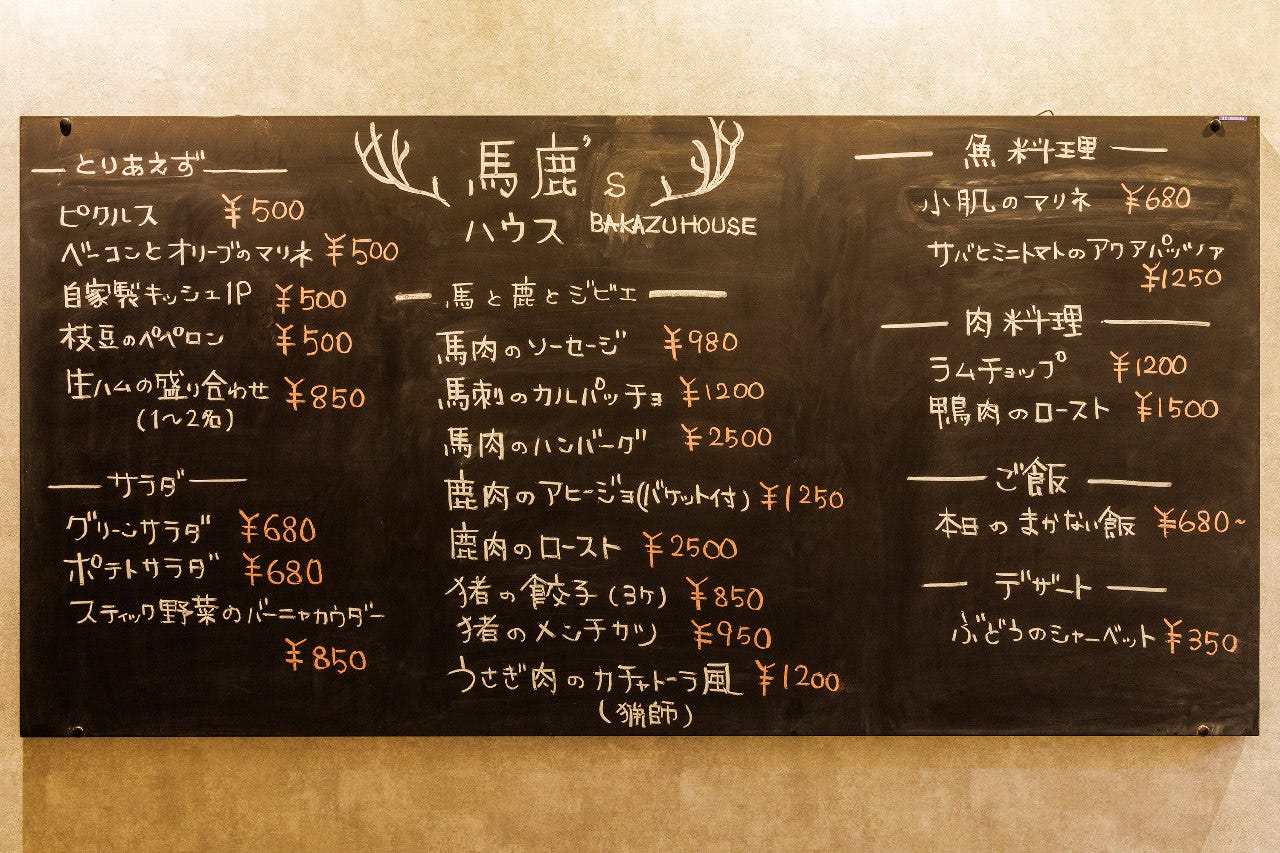 とりあえず
ピクルス ¥500
ベーコンとオリーブのマリネ ¥500
自家製キッシュ1P ¥500
枝豆のペペロン ¥500
生ハムの盛り合わせ ¥850
(1〜2名)
サラダ
グリーンサラダ ¥680
ポテトサラダ ¥680
スティック野菜のバーニャカウダー
¥850
馬鹿's
ハウス BAKAZUHOUSE
馬と鹿とジビエ
馬肉のソーセージ ¥980
馬刺のカルパッチョ ¥1200
馬肉のハンバーグ ¥2500
鹿肉のアヒージョ(バケット付) ¥1250
鹿肉のロースト ¥2500
猪の餃子(3ケ) ¥850
猪のメンチカツ ¥950
うさぎ肉のカチャトーラ風 ¥1200
(猟師)
魚料理
小肌のマリネ ¥680
サバとミニトマトのアクアパッツァ
¥1250
肉料理
ラムチョップ ¥1200
鴨肉のロースト ¥1500
ご飯
本日のまかない飯 ¥680~
デザート
ぶどうのシャーベット ¥350